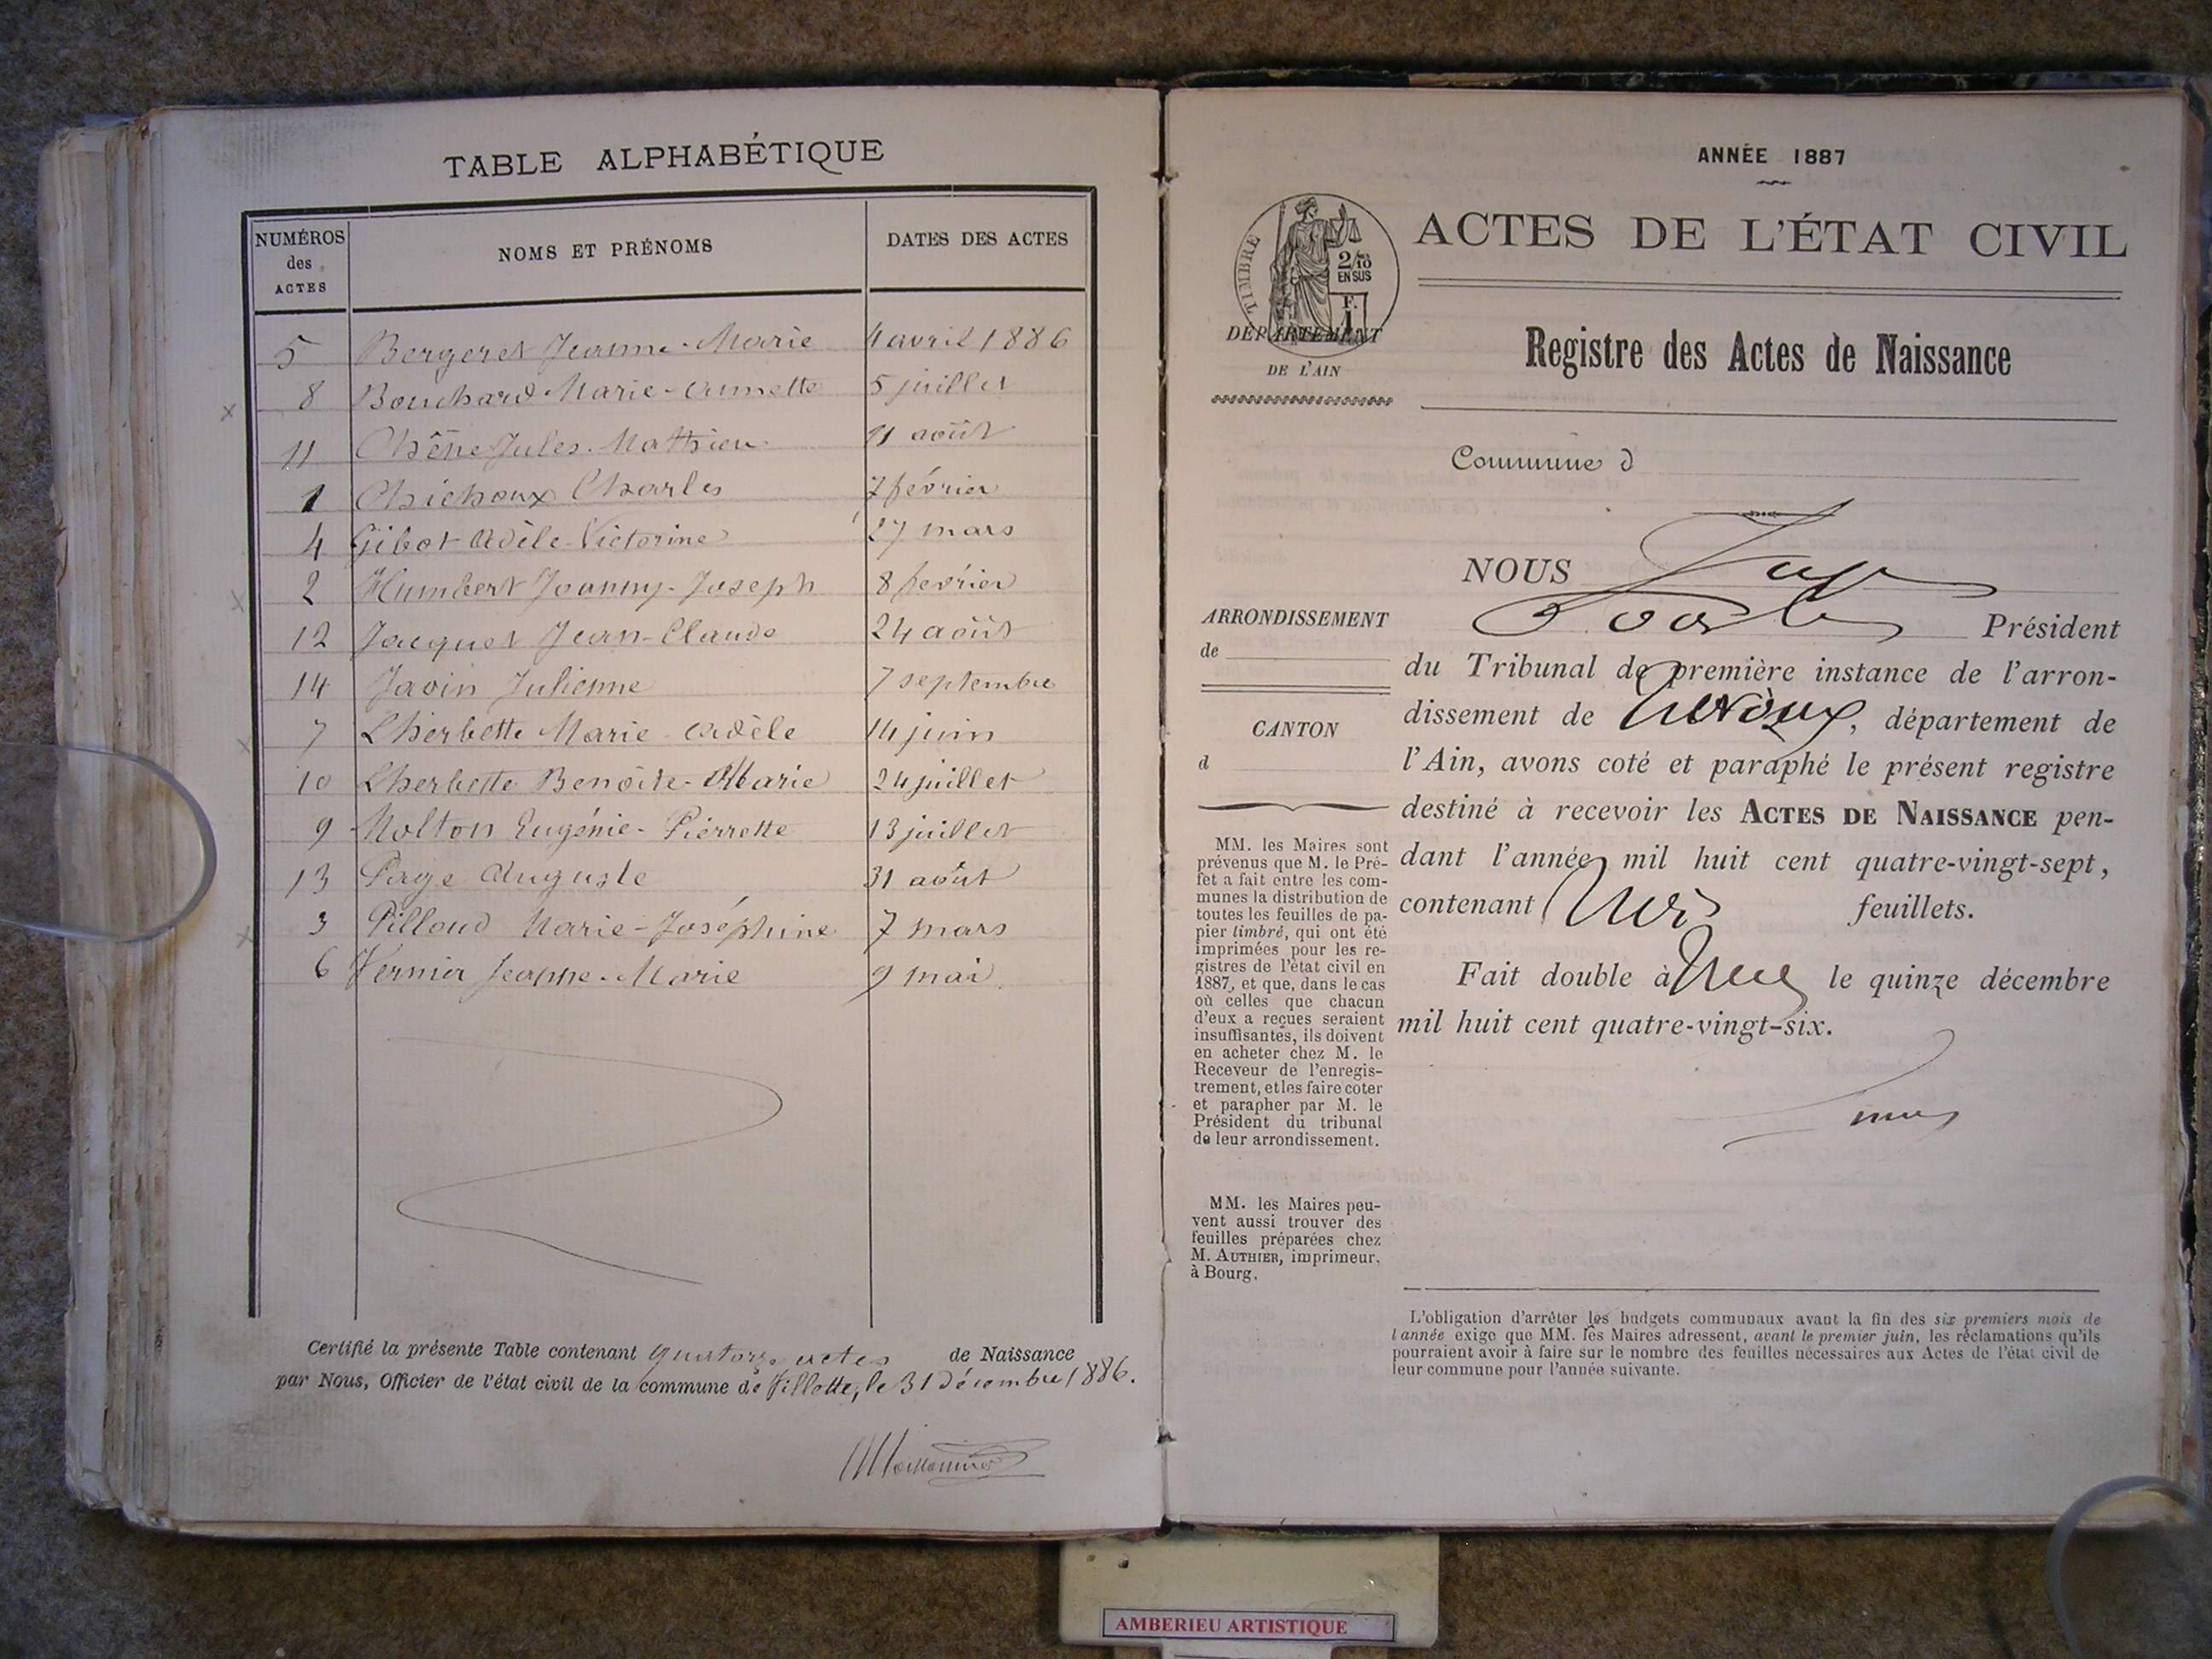 TABLE ALPHABÉTIQUE
NUMÉROS des ACTES NOMS ET PRÉNOMS DATES DES ACTES
5 Bergeret Jeanne-Marie 4 avril 1886
8 Bouchard Marie-Annette 5 juillet
11 Chêne Jules-Mathieu 11 août
1 Chichoux Charles 7 février
4 Gibot Adèle-Victorine 27 mars
2 Humbert Joanny-Joseph 8 février
12 Jacquet Jean-Claude 24 août
14 Javin Julienne 7 septembre
7 Lherbette Marie-Adèle 14 juin
10 Lherbette Benoîte-Marie 24 juillet
9 Molton Eugénie-Pierrette 13 juillet
13 Page Auguste 31 août
3 Pilloud Marie-Joséphine 7 mars
6 Vernier Jeanne-Marie 9 mai
Certifié la présente Table contenant quatorze actes de Naissance
par Nous, Officier de l'état civil de la commune de Villette, le 31 Décembre 1886.
ANNÉE 1887
TIMBRE
2/10
EN SUS
F.
1
DÉPARTEMENT
DE L'AIN
ACTES DE L'ÉTAT CIVIL
Registre des Actes de Naissance
Commune d
ARRONDISSEMENT
de
CANTON
d
MM. les Maires sont
prévenus que M. le Pré-
fet a fait entre les com-
munes la distribution de
toutes les feuilles de pa-
pier timbré, qui ont été
imprimées pour les re-
gistres de l'état civil en
1887, et que, dans le cas
où celles que chacun
d'eux a reçues seraient
insuffisantes, ils doivent
en acheter chez M. le
Receveur de l'enregis-
trement, et les faire coter
et parapher par M. le
Président du tribunal
de leur arrondissement.
MM. les Maires peu-
vent aussi trouver des
feuilles préparées chez
M. AUTHIER, imprimeur,
à Bourg.
NOUS
Président
du Tribunal de première instance de l'arron-
dissement de Trévoux, département de
l'Ain, avons coté et paraphé le présent registre
destiné à recevoir les ACTES DE NAISSANCE pen-
dant l'année mil huit cent quatre-vingt-sept,
contenant feuillets.
Fait double à le quinze décembre
mil huit cent quatre-vingt-six.
L'obligation d'arrêter les budgets communaux avant la fin des six premiers mois de
l'année exige que MM. les Maires adressent, avant le premier juin, les réclamations qu'ils
pourraient avoir à faire sur le nombre des feuilles nécessaires aux Actes de l'état civil de
leur commune pour l'année suivante.
AMBERIEU ARTISTIQUE